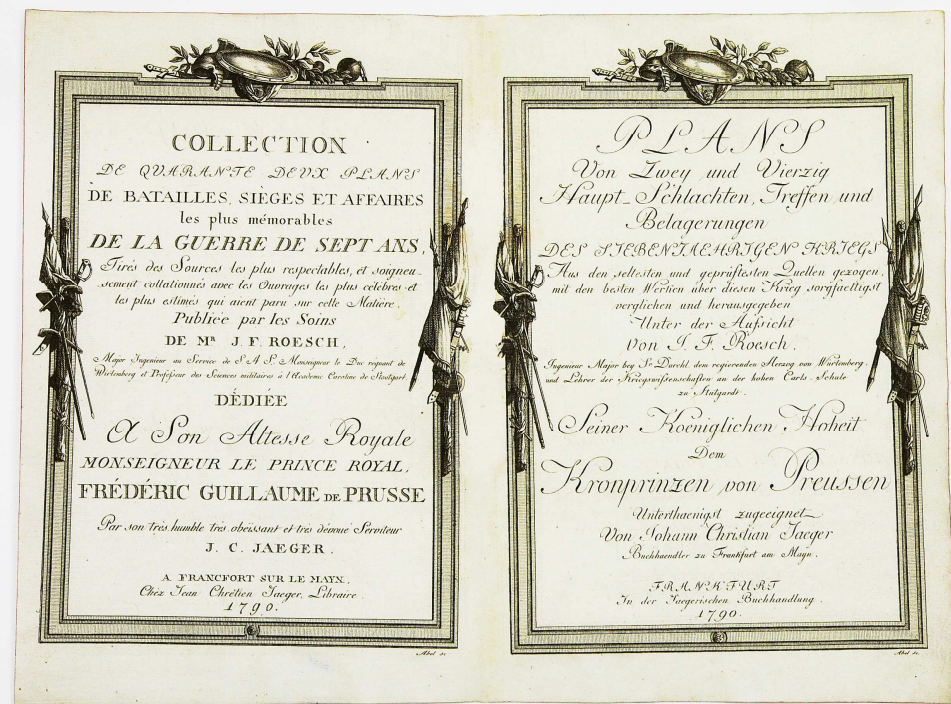 COLLECTION
DE QUARANTE DEUX PLANS
DE BATAILLES, SIÈGES ET AFFAIRES
les plus mémorables
DE LA GUERRE DE SEPT ANS,
Tirés des Sources les plus respectables, et soigneu-
sement collationnés avec les Ouvrages les plus célèbres et
les plus estimés qui aient paru sur cette Matière.
Publiée par les Soins
DE MR. J. F. ROESCH,
Major Ingenieur au Service de S A S Monseigneur le Duc régnant de
Wirtemberg et Professeur des Sciences militaires à l'Academie Caroline de Stoutgart
DÈDIÉE
A Son Altesse Royale
MONSEIGNEUR LE PRINCE ROYAL,
FRÉDÉRIC GUILLAUME DE PRUSSE
Par son très humble très obéissant et très dévoué Serviteur
J. C. JAEGER.
A FRANCFORT SUR LE MAYN,
Chèz Jean Chrêtien Jaeger, Libraire.
1790.
Abel sc.
PLANS
Von Zwey und Vierzig
Haupt-Schlachten, Treffen und
Belagerungen
DES SIEBENJAEHRIGEN KRIEGS
Aus den seltesten und geprüftesten Quellen gezogen,
mit den besten Werken über diesen Krieg sorgfaeltigst
verglichen und herausgegeben
Unter der Aufsicht
Von J. F. Roesch.
Ingenieur Major bey Sr. Durchl. dem regierenden Herzog von Würtemberg,
und Lehrer der Kriegswissenschaften an der hohen Carls-Schule
zu Stutgardt.
Seiner Koeniglichen Hoheit
Dem
Kronprinzen von Preussen
Unterthaenigst zugeeignet
Von Johann Christian Jaeger
Buchhaendler zu Frankfurt am Mayn.
FRANKFURT
In der Jaegerischen Buchhandlung.
1790.
Abel sc.